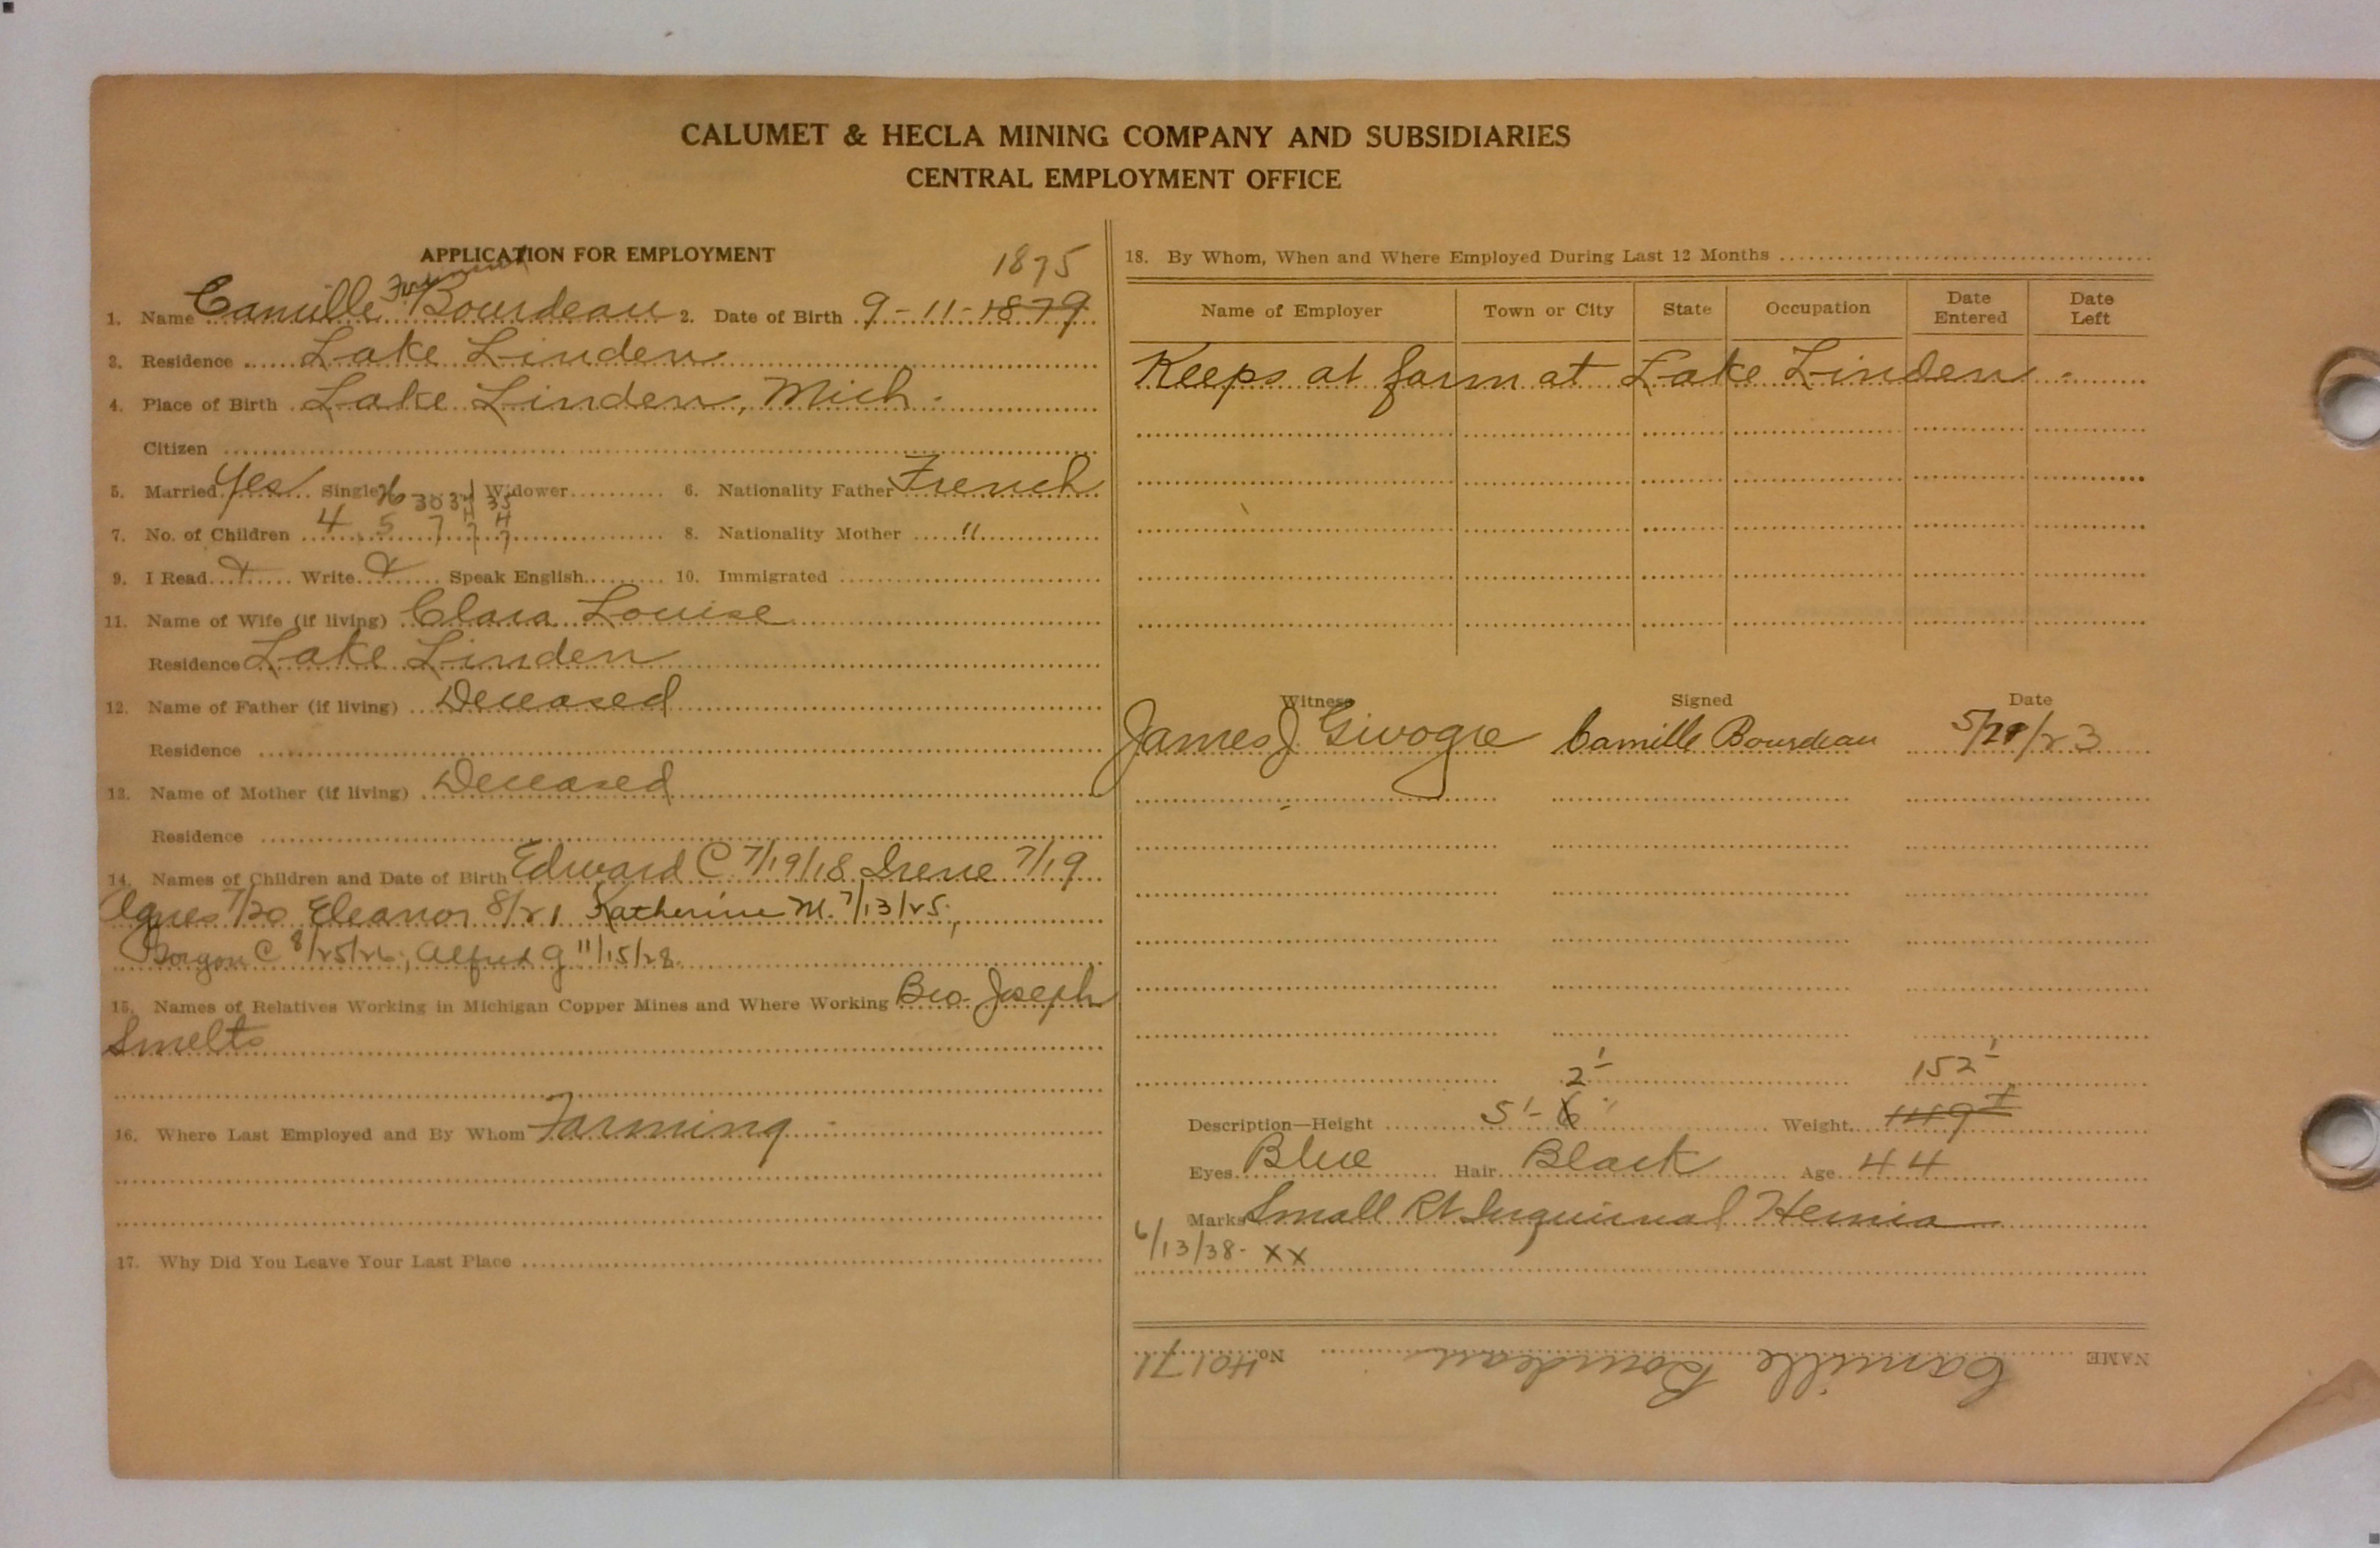 CALUMET & HECLA MINING COMPANY AND SUBSIDIARIES
CENTRAL EMPLOYMENT OFFICE
APPLICATION FOR EMPLOYMENT
1875
1. Name Camille Bourdeau 2. Date of Birth 9-11-1879
3. Residence Lake Linden
4. Place of Birth Lake Linden, Mich.
Citizen
5. Married Yes Single Widower 6. Nationality Father French
30 34 35
7. No. of Children 4 5 7 7 7 8. Nationality Mother "
9. I Read Write Speak English 10. Immigrated
11. Name of Wife (if living) Clara Louise
Residence Lake Linden
12. Name of Father (if living) Deceased
Residence
13. Name of Mother (if living) Deceased
Residence
14. Names of Children and Date of Birth Edward C 7/19/18 Irene 7/19
Agnes 7/20 Eleanor 8/21 Katherine M. 7/13/25,
C 8/25/26, Alfred G 11/15/28
15. Names of Relatives Working in Michigan Copper Mines and Where Working Bro. Joseph
Smelts
16. Where Last Employed and By Whom Farming
17. Why Did You Leave Your Last Place
18. By Whom, When and Where Employed During Last 12 Months
Name of Employer Town or City State Occupation Date Entered Date Left
Keeps at farm at Lake Linden.
Witness Signed Date
James J. Givogre Camille Bourdeau 5/28/23
2 1/ 152 1/
Description—Height 5'-6" Weight 149 1/
Eyes Blue Hair Black Age 44
Marks Small Rt Inguinal Hernia
6/13/38- XX
NAME Camille Bourdeau No. 40171